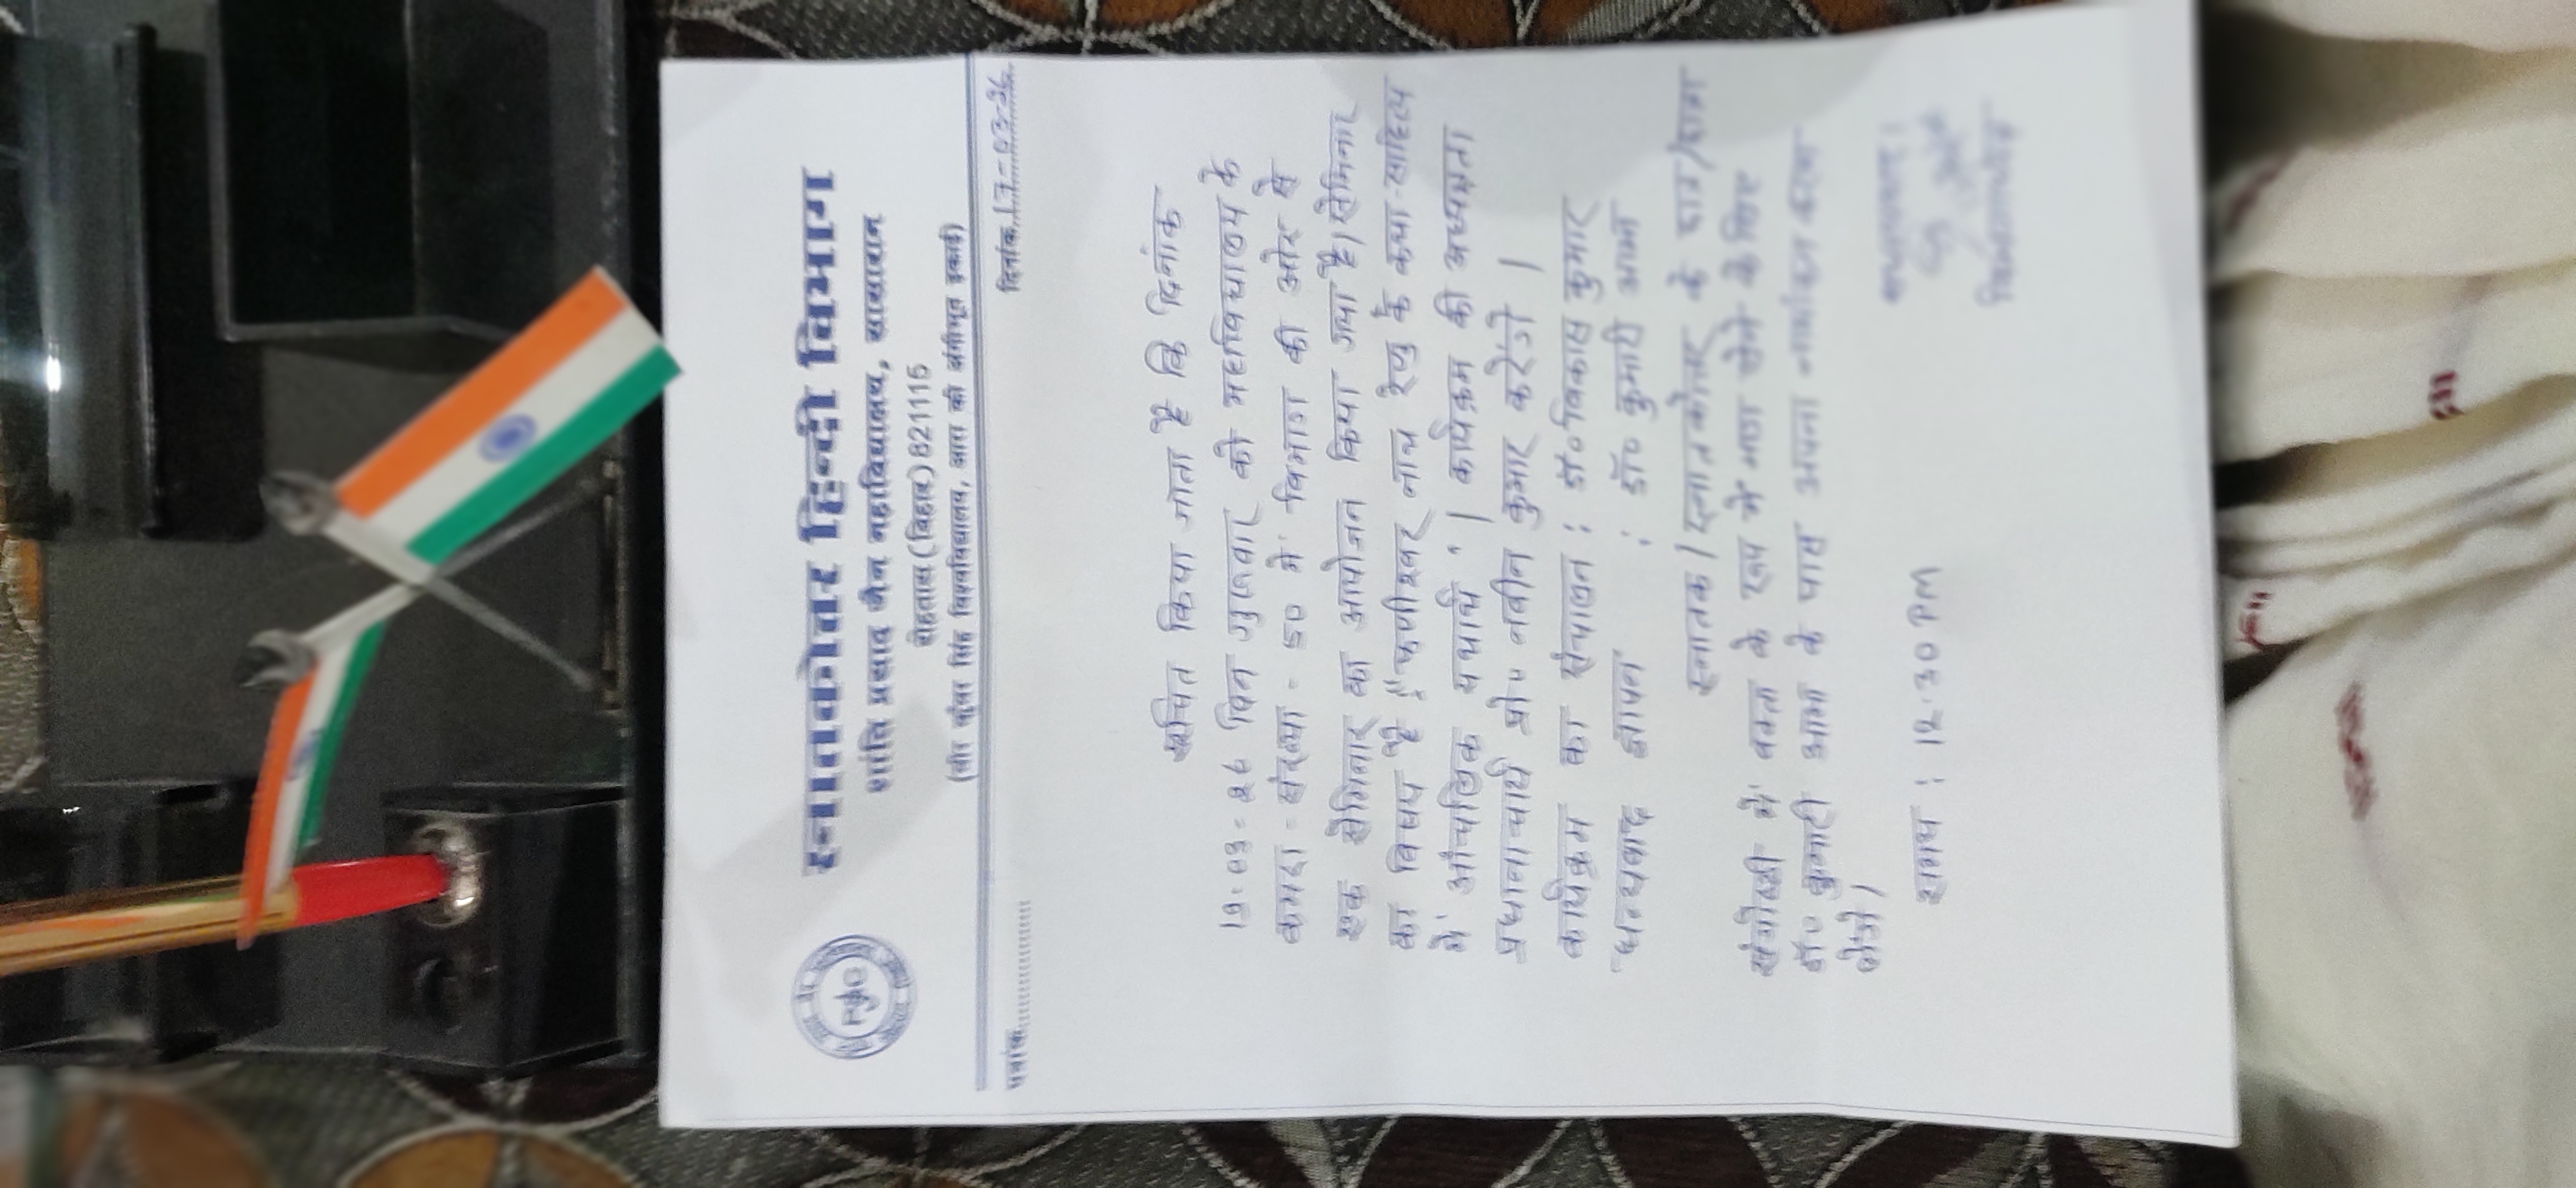 स्नातकोत्तर हिन्दी विभाग
शांति प्रसाद जैन महाविद्यालय, सासाराम
रोहतास (बिहार) 821115
(वीर कुंवर सिंह विश्वविद्यालय, आरा की अंगीभूत इकाई)
पत्रांक.................... दिनांक 17-03-26
सूचित किया जाता है कि दिनांक
19-03-26 दिन गुरुवार को महाविद्यालय के
कमरा - संख्या - 50 में विभाग की ओर से
एक सेमिनार का आयोजन किया गया है। सेमिनार
का विषय है "फणीश्वर नाथ रेणु के कथा-साहित्य
में आंचलिक यथार्थ"। कार्यक्रम की अध्यक्षता
प्रधानाचार्य प्रो० नवीन कुमार करेंगे।
कार्यक्रम का संचालन : डॉ० विकास कुमार
धन्यवाद ज्ञापन : डॉ० कुमारी आभा
स्नातक / स्नातकोत्तर के छात्र/छात्रा
संगोष्ठी में वक्ता के रूप में भाग लेने के लिए
डॉ० कुमारी आभा के पास अपना नामांकन करवा
लेंगे।
समय : 12.30 PM
विभागाध्यक्ष